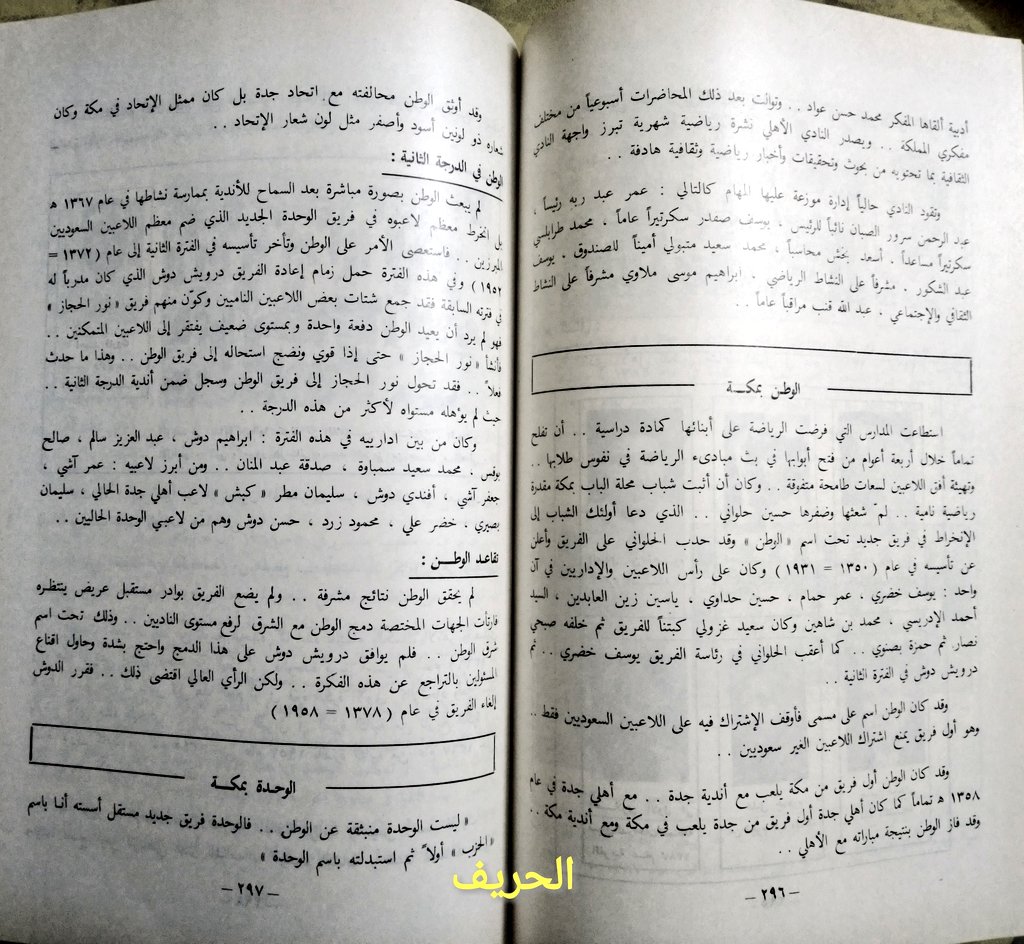 أدبية ألقاها المفكر محمد حسن عواد . . وتوالت بعد ذلك المحاضرات أسبوعياً من مختلف
مفكري المملكة . . ويصدر النادي الأهلي نشرة رياضية شهرية تبرز واجهة النادي
الثقافية بما تحتويه من بحوث وتحقيقات وأخبار رياضية وثقافية هادفة . .
وتقود النادي حالياً إدارة موزعة عليها المهام كالتالي : عمر عبد ربه رئيساً ،
عبد الرحمن سرور الصبان نائباً للرئيس ، يوسف صفدر سكرتيراً عاماً . محمد طرابلسي
سكرتيراً مساعداً . أسعد بخش محاسباً ، محمد سعيد متبولي أميناً للصندوق . يوسف
عبد الشكور . مشرفاً على النشاط الرياضي . ابراهيم موسى ملاوي مشرفاً على النشاط
الثقافي والإجتماعي . عبد الله قنب مراقباً عاماً . .
الوطن بمكــة
استطاعت المدارس التي فرضت الرياضة على أبنائها كمادة دراسية . . أن تفلح
تماماً خلال أربعة أعوام من فتح أبوابها في بث مبادىء الرياضة في نفوس طلابها . .
وتهيئة أفق اللاعبين لسعات طامحة متفوقة . . وكان أن أثبت شباب محلة الباب بمكة مقدرة
رياضية نامية . . لمّ شعثها وضفرها حسين حلواني . . الذي دعا أولئك الشباب إلى
الإنخراط في فريق جديد تحت اسم « الوطن » وقد حدب الحلواني على الفريق وأعلن
عن تأسيسه في عام ( ١٣٥٠ = ١٩٣١ ) وكان على رأس اللاعبين والإداريين في آن
واحد : يوسف خضري . عمر حمام ، حسين حداوي ، ياسين زين العابدين ، السيد
أحمد الإدريسي . محمد بن شاهين وكان سعيد غزولي كبتناً للفريق ثم خلفه صبحي
نصار ثم حمزة بصنوي . . كما أعقب الحلواني في رئاسة الفريق يوسف خضري . . ثم
درويش دوش في الفترة الثانية . .
وقد كان الوطن اسم على مسمى فأوقف الإشتراك فيه على اللاعبين السعوديين فقط . .
وهو أول فريق يمنع اشتراك اللاعبين الغير سعوديين . .
وقد كان الوطن أول فريق من مكة يلعب مع أندية جدة . . مع أهلي جدة في عام
١٣٥٨ ه تماماً كما كان أهلي جدة أول فريق من جدة يلعب في مكة ومع أندية مكة . .
وقد فاز الوطن بنتيجة مباراته مع الأهلي . .
– ٢٩٦ –
وقد أوثق الوطن محالفته مع اتحاد جدة بل كان ممثل الإتحاد في مكة وكان
شعاره ذو لونين أسود وأصفر مثل لون شعار الإتحاد . .
الوطن في الدرجة الثانية :
لم يبعث الوطن بصورة مباشرة بعد السماح للأندية بممارسة نشاطها في عام ١٣٦٧ ه
بل انخرط معظم لاعبوه في فريق الوحدة الجديد الذي ضم معظم اللاعبين السعوديين
المبرزين . . فاستعصى الأمر على الوطن وتأخر تأسيسه في الفترة الثانية إلى عام ( ١٣٧٢ =
١٩٥٢ ) وفي هذه الفترة حمل زمام إعادة الفريق درويش دوش الذي كان مدرباً له
في فترته السابقة فقد جمع شتات بعض اللاعبين الناميين وكوّن منهم فريق « نور الحجاز »
فهو لم يرد أن يعيد الوطن دفعة واحدة وبمستوى ضعيف يفتقر إلى اللاعبين المتمكنين . .
فأنشأ « نور الحجاز » حتى إذا قوي ونضج استحاله إلى فريق الوطن . . وهذا ما حدث
فعلاً . . فقد تحول نور الحجاز إلى فريق الوطن وسجل ضمن أندية الدرجة الثانية . .
حيث لم يؤهله مستواه لأكثر من هذه الدرجة . .
وكان من بين ادارييه في هذه الفترة : ابراهيم دوش ، عبد العزيز سالم ، صالح
بوقس . محمد سعيد سمباوة ، صدقة عبد المنان . . ومن أبرز لاعبيه : عمر آشي ،
جعفر آشي ، أفندي دوش ، سليمان مطر « كبش » لاعب أهلي جدة الحالي ، سليمان
بصيري ، خضر علي ، محمود زرد ، حسن دوش وهم من لاعبي الوحدة الحاليين . .
تقاعد الوطــن :
لم يحقق الوطن نتائج مشرفة . . ولم يضع الفريق بوادر مستقبل عريض ينتظره
فارتأت الجهات المختصة دمج الوطن مع الشرق لرفع مستوى الناديين . . وذلك تحت اسم
شرق الوطن . . فلم يوافق درويش دوش على هذا الدمج واحتج بشدة وحاول اقناع
المسئولين بالتراجع عن هذه الفكرة . . ولكن الرأي العالي اقتضى ذلك . . فقرر الدوش
إلغاء الفريق في عام ( ١٣٧٨ = ١٩٥٨ )
الوحدة بمكــة
« ليست الوحدة منبثقة عن الوطن . . فالوحدة فريق جديد مستقل أسسته أنا باسم
« الحزب » أولاً ثم استبدلته باسم الوحدة »
– ٢٩٧ –
الحريف